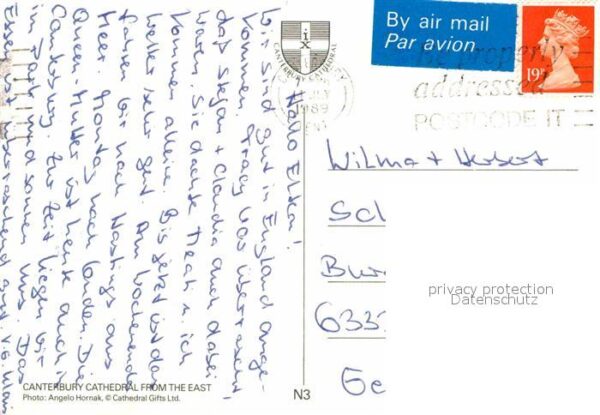 By air mail
Par avion
CANTERBURY CATHEDRAL
1989
Be properly
addressed
POSTCODE IT
19P
Hallo Eltern!
Wir sind gut in England ange-
kommen. Tracy war überrascht,
daß Stefan + Claudia auch dabei
waren. Sie dachte + ich
kommen alleine. Bis jetzt ist das
Wetter sehr gut. Am Wochenende
fahren wir nach Hastings ans
Meer. Montag nach London. Die
Queen-Mutter ist heute auch in
Canterbury. Zur Zeit liegen wir
im Park und sonnen uns. Das
Essen überraschend gut. V.G.
Wilma + Herbert
Sc
Bur
633
Ge
privacy protection
Datenschutz
CANTERBURY CATHEDRAL FROM THE EAST
Photo: Angelo Hornak, © Cathedral Gifts Ltd.
N3